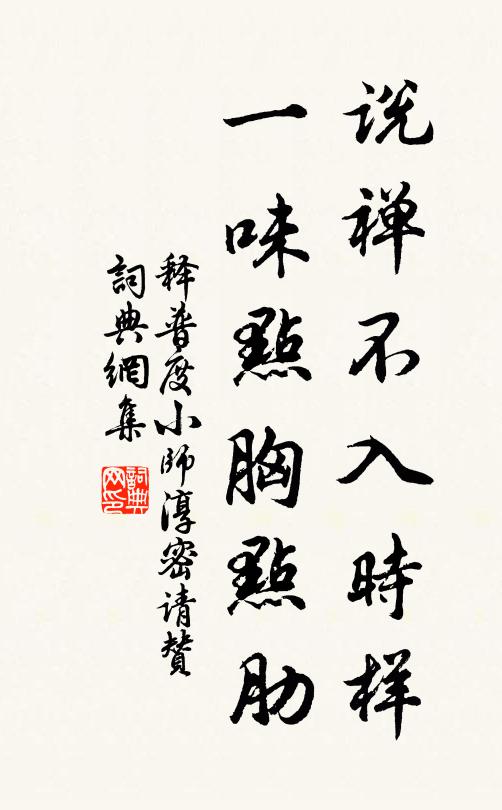 说禅不入時样
一味點胸點肋
释普度小师淳密请赞
詞典網集
詞典网印